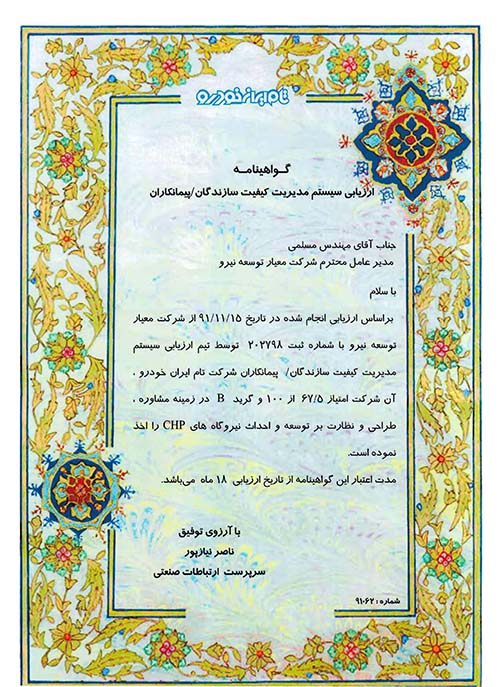 تام ایران خودرو
گـواهینامـه
ارزیابی سیستم مدیریت کیفیت سازندگان/پیمانکاران
جناب آقای مهندس مسلمی
مدیر عامل محترم شرکت معیار توسعه نیرو
با سلام
براساس ارزیابی انجام شده در تاریخ ۹۱/۱۱/۱۵ از شرکت معیار
توسعه نیرو با شماره ثبت ۲۰۲۷۹۸ توسط تیم ارزیابی سیستم
مدیریت کیفیت سازندگان/ پیمانکاران شرکت تام ایران خودرو ،
آن شرکت امتیاز ۶۷/۵ از ۱۰۰ و گرید B در زمینه مشاوره ،
طراحی و نظارت بر توسعه و احداث نیروگاه های CHP را اخذ
نموده است.
مدت اعتبار این گواهینامه از تاریخ ارزیابی ۱۸ ماه می‌باشد.
با آرزوی توفیق
ناصر نیازپور
سرپرست ارتباطات صنعتی
شماره : ۶۲-۹۱